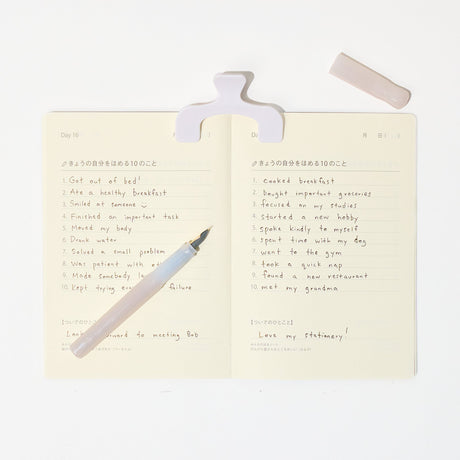 Day 16
月
きょうの自分をほめる10のこと
1. Got out of bed!
2. Ate a healthy breakfast
3. Smiled at someone
4. Finished an important task
5. Moved my body
6. Drank water
7. Solved a small problem
8. Was patient with
9. Made somebody
10. Kept trying failure
【ついでのひとこと】
forward to meeting Bob
月 日
きょうの自分をほめる10のこと
1. cooked breakfast
2. Bought important groceries
3. focused on my studies
4. started a new hobby
5. spoke kindly to myself
6. spent time with my dog
7. went to the gym
8. took a quick nap
9. found a new restaurant
10. met my grandma
【ついでのひとこと】
Love my stationery!